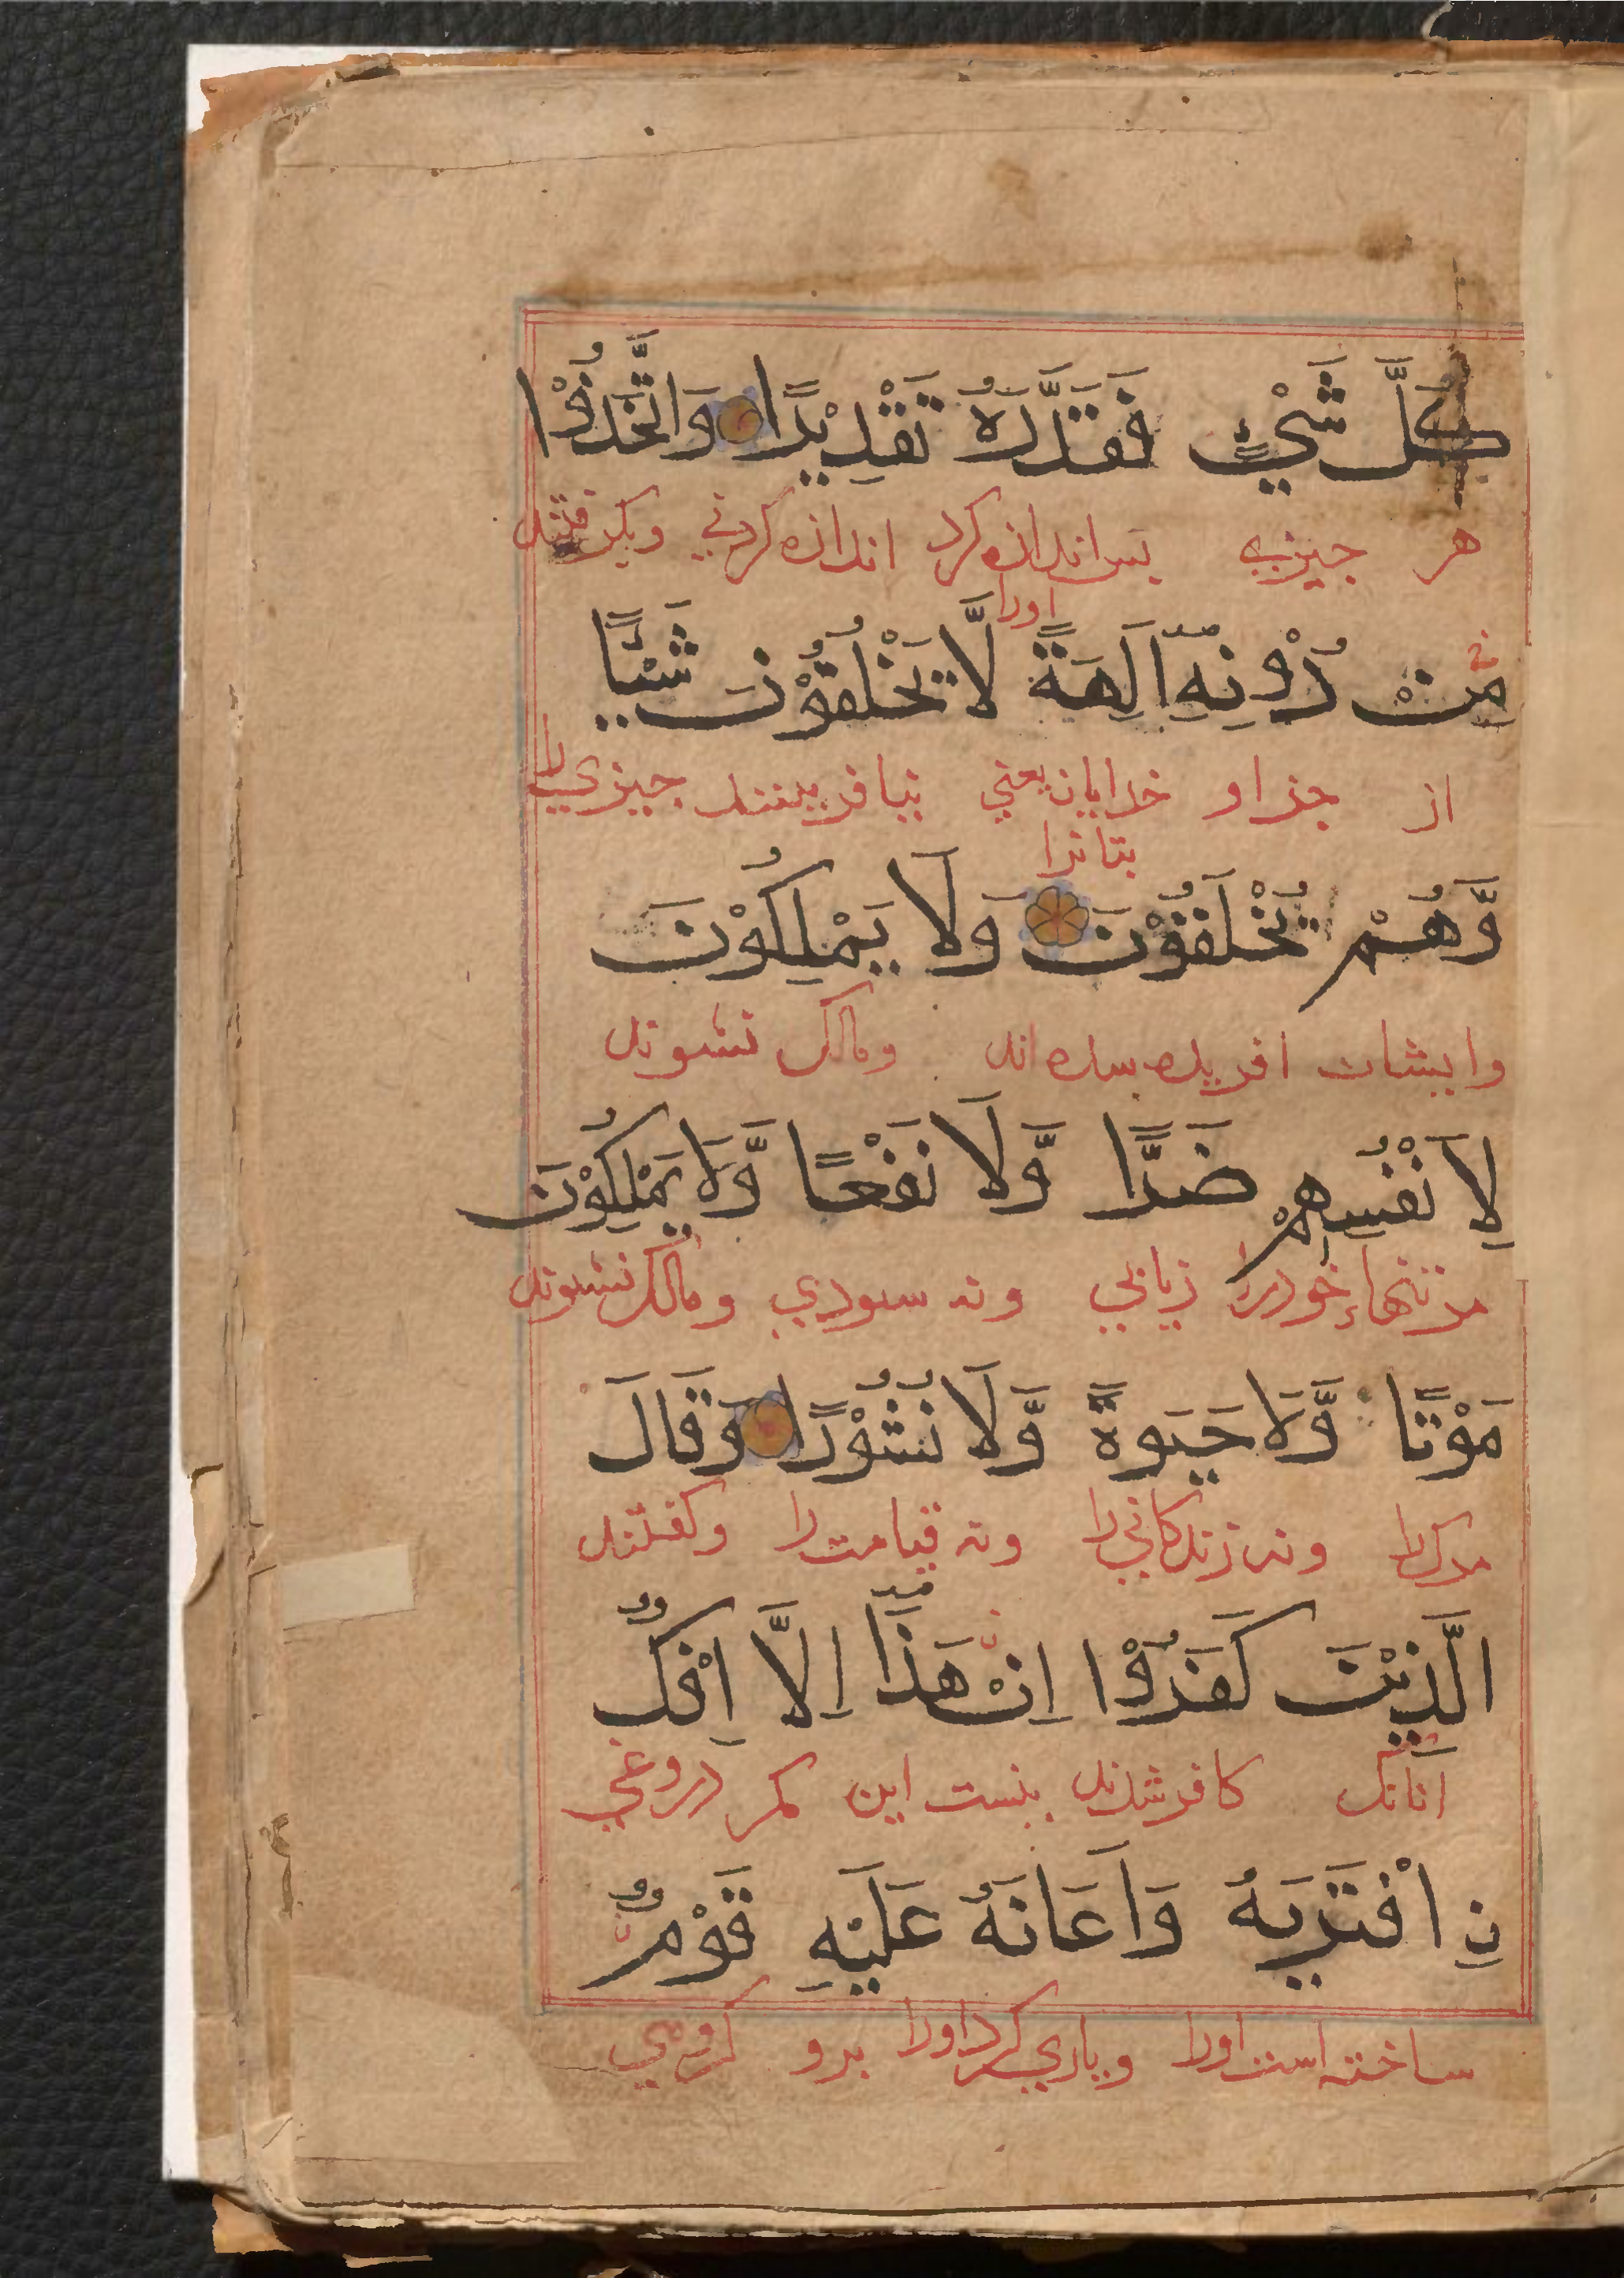 كُلَّ شَيْءٍ فَقَدَّرَهُ تَقْدِيْرًا وَاتَّخَذُوْا
هر جيزي بس اندازه كرد اندازه كردني وبكرفتند
اورا
مِنْ دُوْنِهٖٓ اٰلِهَةً لَّا يَخْلُقُوْنَ شَيْـًٔا
از جز او خدايان يعني نيافرينند جيزي را
بتانرا
وَّهُمْ يُخْلَقُوْنَ وَلَا يَمْلِكُوْنَ
وايشان افريده شده اند ومالك نشوند
لِاَنْفُسِهِمْ ضَرًّا وَّلَا نَفْعًا وَّلَا يَمْلِكُوْنَ
مر تنهاء خود را زياني ونه سودي ومالك نشوند
مَوْتًا وَّلَا حَيٰوةً وَّلَا نُشُوْرًا وَقَالَ
مرك را ونه زندكاني را ونه قيامت را وكفتند
الَّذِيْنَ كَفَرُوْٓا اِنْ هٰذَآ اِلَّآ اِفْكٌ
آنانك كافر شدند نيست اين مكر دروغي
نِ افْتَرٰىهُ وَاَعَانَهٗ عَلَيْهِ قَوْمٌ
ساخته است اورا وياري كرد اورا برو كروهي